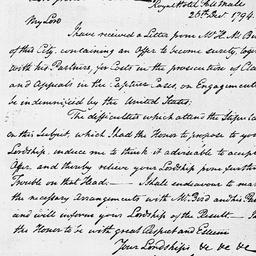 Royal Hotel Pall Mall
26th Decr 1794.
My Lord
I have received a Letter from Mr H. M. Bi
of this City, containing an Offer to become surety, toge
with his Partners, for Costs in the prosecution of Cla
and Appeals in the Capture Cases, on Engagement
be indemnified by the United States.
The difficulties which attend the Stipula
on this Subject, which I had the Honor to propose to yo
Lordship, induce me to think it adviseable to accept
Offer, and thereby relieve your Lordship from further
Trouble on that Head. I shall endeavour to mak
the necessary Arrangements with Mr Bird and his Par
and will inform your Lordship of the Result. I
the Honor to be with great Respect and Esteem
Your Lordship's &c &c &c